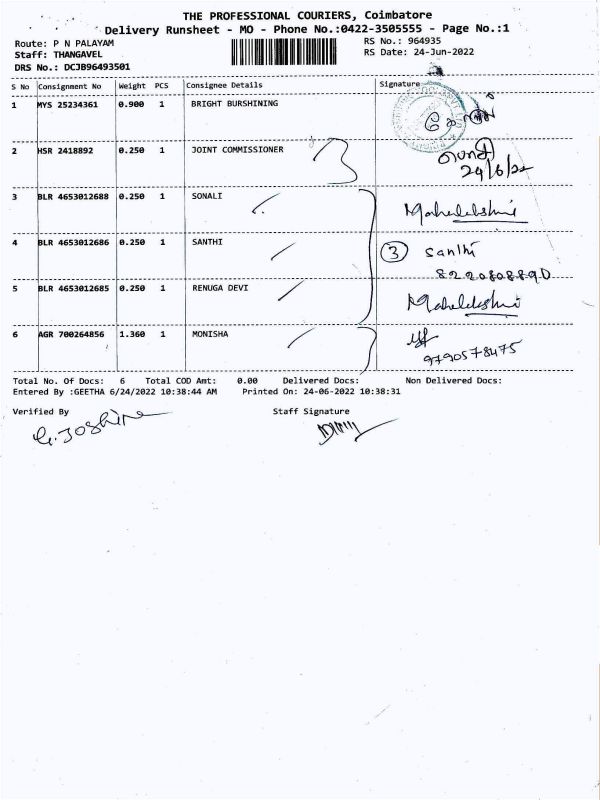 THE PROFESSIONAL COURIERS, Coimbatore
Delivery Runsheet - MO - Phone No.:0422-3505555 - Page No.:1
Route: P N PALAYAM RS No.: 964935
Staff: THANGAVEL RS Date: 24-Jun-2022
DRS No.: DCJB96493501
S No Consignment No Weight PCS Consignee Details Signature
1 MYS 25234361 0.900 1 BRIGHT BURSHINING
2 HSR 2418892 0.250 1 JOINT COMMISSIONER
24/6/22
3 BLR 4653012688 0.250 1 SONALI Mahalakshmi
4 BLR 4653012686 0.250 1 SANTHI 3 Santhi
8220808890
5 BLR 4653012685 0.250 1 RENUGA DEVI Mahalakshmi
6 AGR 700264856 1.360 1 MONISHA
9790578475
Total No. Of Docs: 6 Total COD Amt: 0.00 Delivered Docs: Non Delivered Docs:
Entered By :GEETHA 6/24/2022 10:38:44 AM Printed On: 24-06-2022 10:38:31
Verified By Staff Signature